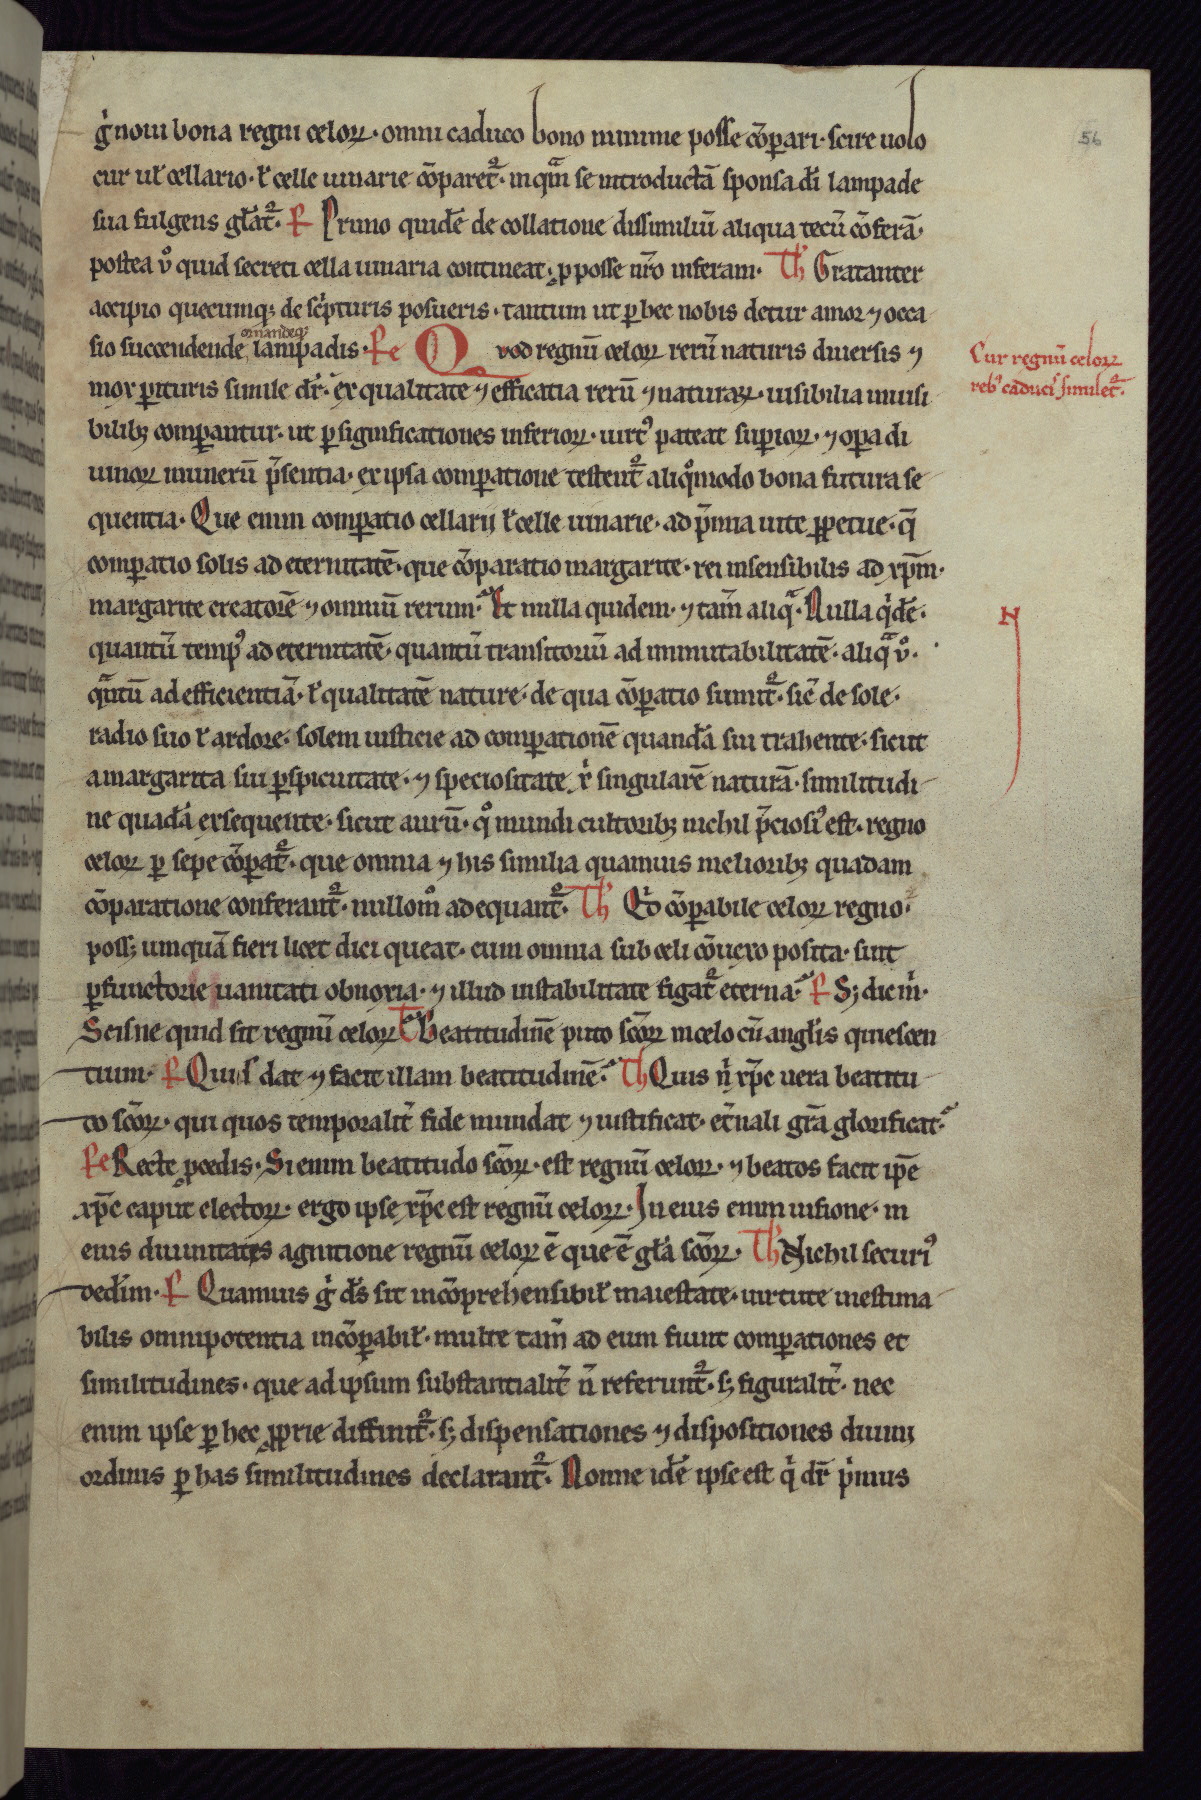 56
g̍ noui bona regni celoꝝ · omni caduco bono minime posse cōꝑari · scire uolo
cur ul̄ cellario · l̄ celle uinarie cōparet᷑ · in qͣm se introductā sponsa dī lampade
sua fulgens gl̄at᷑ · F Primo quidē de collatione dissimiliū aliqua tecū cōferā ·
postea v̊ quid secreti cella uinaria contineat · ꝓ posse nr̄o inferam · Th̍ Gratanter
accipio quecumqꝫ de sc̍pturis posueris · tantum ut ꝑ hec nobis detur amor ⁊ occa
ornandeqꝫ
sio succendende lampadis · Fe Quod regnū celoꝝ rerū naturis diuersis ⁊
mox ꝑituris simile dr̄ · ex qualitate ⁊ efficatia rerū ⁊ naturaꝝ · uisibilia inuisi
Cur regnū celoꝝ
rebꝰ caducis similet᷑ ·
bilibꝫ comꝑantur · ut ꝑ significationes inferioꝝ · uirtꝰ pateat supioꝝ · ⁊ oꝑa di
uinoꝝ munerū p̄sentia · ex ipsa comꝑatione testent᷑ aliqͦmodo bona futura se
quentia · Que enim comꝑatio cellarij l̄ celle uinarie · ad p̄mia uite ꝑpetue · q̄
comꝑatio solis ad eternitatē · que cōparatio margarite · rei insensibilis ad xp̄m ·
margarite creatorē ⁊ omniū rerum · Et nulla quidem · ⁊ tam̄ aliqͣ · Nulla q̍dē ·
N
quantū tempꝰ ad eternitatē · quantū transitoriū ad inmutabilitatē · aliqͣ v̊ ·
qͣntū ad efficientiā · l̄ qualitatē nature · de qua cōꝑatio sumit᷑ · sic̄ de sole ·
radio suo l̄ ardore · solem iusticie ad comꝑationē quandā sui trahente · sicut
a margarita sui ꝑspicuitate · ⁊ speciositate xp̄i singularē naturā · similitudi
ne quadā exsequente · sicut aurū · qͦ mundi cultoribꝫ nichil p̄ciosiꝰ est · regno
celoꝝ ꝑ sepe cōꝑat᷑ · que omnia ⁊ his similia quamuis melioribꝫ quadam
cōparatione conferant᷑ · nullom̊ adequant᷑ · Th̍ Qd̍ cōꝑabile celoꝝ regno ·
possꝫ umquā fieri licet dici queat · cum omnia sub celi cōuexo posita · sint
ꝑfunctorie uanitati obnoxia · ⁊ illud instabilitate figat᷑ eterna · F Sꝫ dic m̍ ·
Scisne quid sit regnū celoꝝ Th Beatitudinē puto scōꝝ in celo cū angl̄is quiescen
tium · F Quis dat ⁊ facit illam beatitudinē · Th Quis n̍ xp̄c uera beatitu
do scōꝝ · qui quos temporalit̄ fide mundat ⁊ iustificat · et̄nali gr̄a glorificat ·
Fe Recte ꝓcedis · Si enim beatitudo scōꝝ · est regnū celoꝝ · ⁊ beatos facit ip̄e
xp̄c caput electoꝝ · ergo ipse xp̄c est regnū celoꝝ · In eius enim uisione · in
eius diuinitatis agnitione regnū celoꝝ ē que ē gl̄a scōꝝ · Th̍ Nichil securiꝰ
dedim · F Quamuis g̍ ds̄ sit incōprehensibil̄ maiestate · uirtute inestima
bilis omnipotentia incōꝑabil̄ · multe tam̄ ad eum fiunt comꝑationes et
similitudines · que ad ipsum substantialit̄ n̄ referunt᷑ · sꝫ figuralit̄ · nec
enim ipse ꝑ hec ꝓprie diffinit᷑ · sꝫ dispensationes ⁊ dispositiones diuini
ordinis ꝑ has similitudines declarant᷑ · Nonne idē ipse est q̍ dr̄ p̍mus